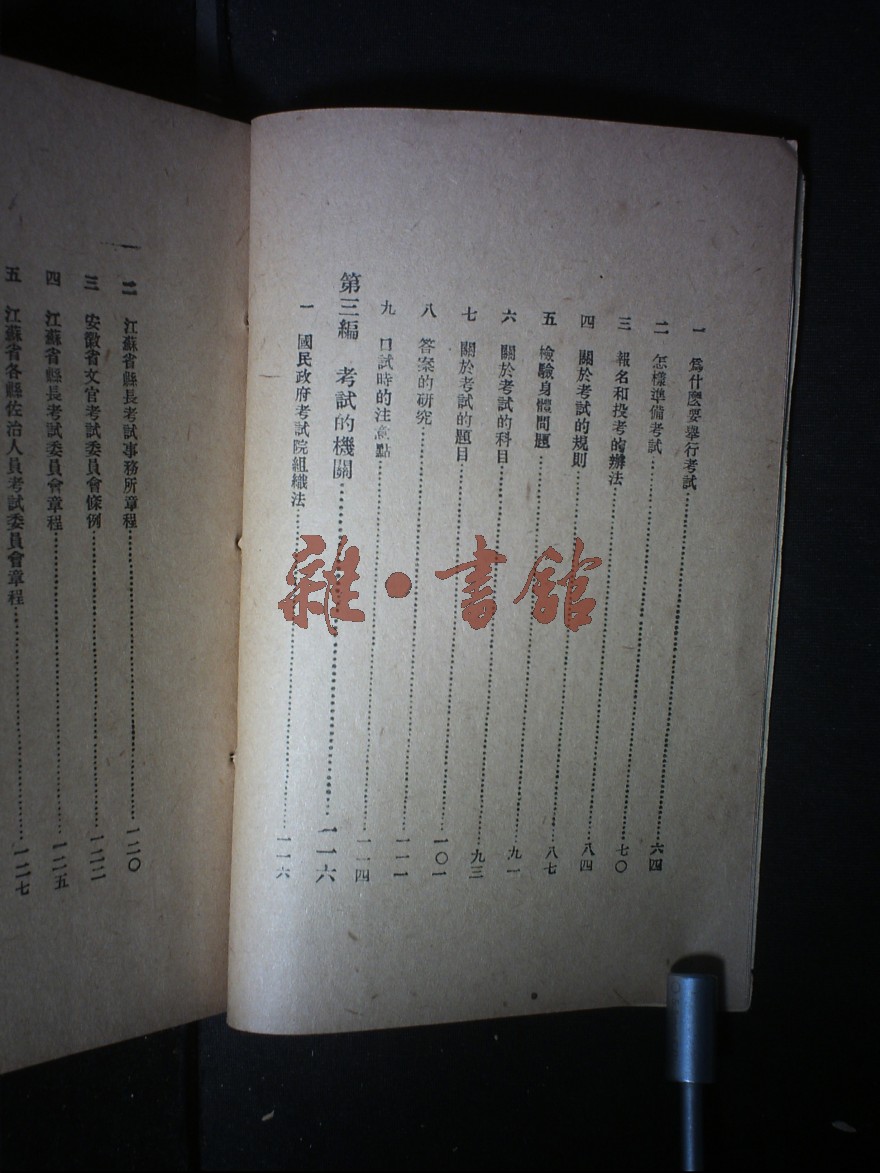 一 爲什麼要舉行考試……六四
二 怎樣準備考試……七〇
三 報名和投考的辦法……八四
四 關於考試的規則……八七
五 檢驗身體問題……九一
六 關於考試的科目……九三
七 關於考試的題目……一〇一
八 答案的研究……一一一
九 口試時的注意點……一一四
第三編 考試的機關……一一六
一 國民政府考試院組織法……一一六
二 江蘇省縣長考試事務所章程……一二〇
三 安徽省文官考試委員會條例……一二二
四 江蘇省縣長考試委員會章程……一二五
五 江蘇省各縣佐治人員考試委員會章程……一二七
雜·書館